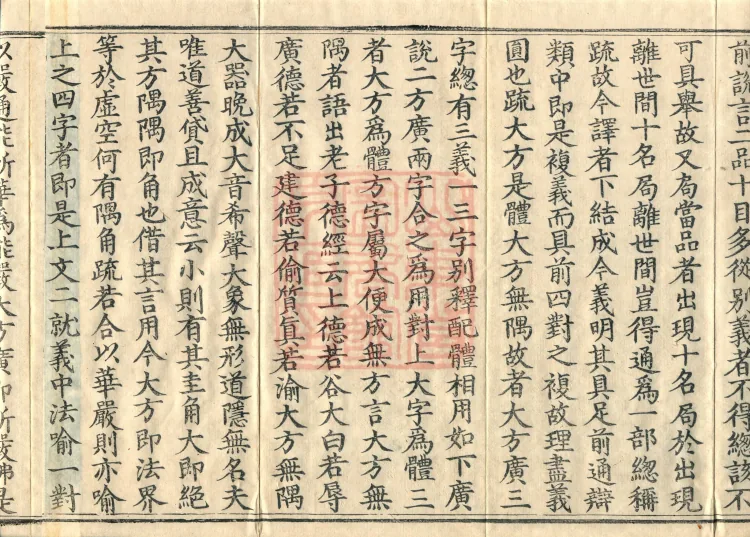 前說言二品十目多從別義者不得總該不
可具舉故又局當品者出現十名局於出現
離世間十名局離世間豈得通爲一部總稱
疏故今譯者下結成今義明其具足前通辯
類中即是複義而具前四對之複故理盡義
圓也疏大方是體大方無隅故者大方廣三
字總有三義一三字別釋配體相用如下廣
說二方廣兩字合之爲用對上大字爲體三
者大方爲體方字屬大便成無方言大方無
隅者語出老子德經云上德若谷大白若辱
廣德若不足建德若偷質真若渝大方無隅
大器晚成大音希聲大象無形道隱無名夫
唯道善貸且成意云小則有其圭角大即絕
其方隅隅即角也借其言用今大方即法界
等於虛空何有隅角疏若合以華嚴則亦喻
上之四字者即是上文二就義中法喻一對
以嚴通能所華爲能嚴大方廣即所嚴佛是